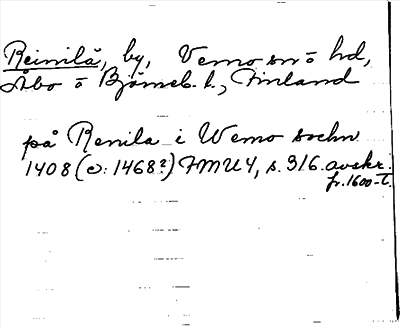 Reimilä, by, Vemo sn o hd,
Åbo o Björneb. l., Finland
på Renila i Wemo sochn
1408 (o: 1468?) FMU 4, s. 916. avskr.
fr. 1600-t.